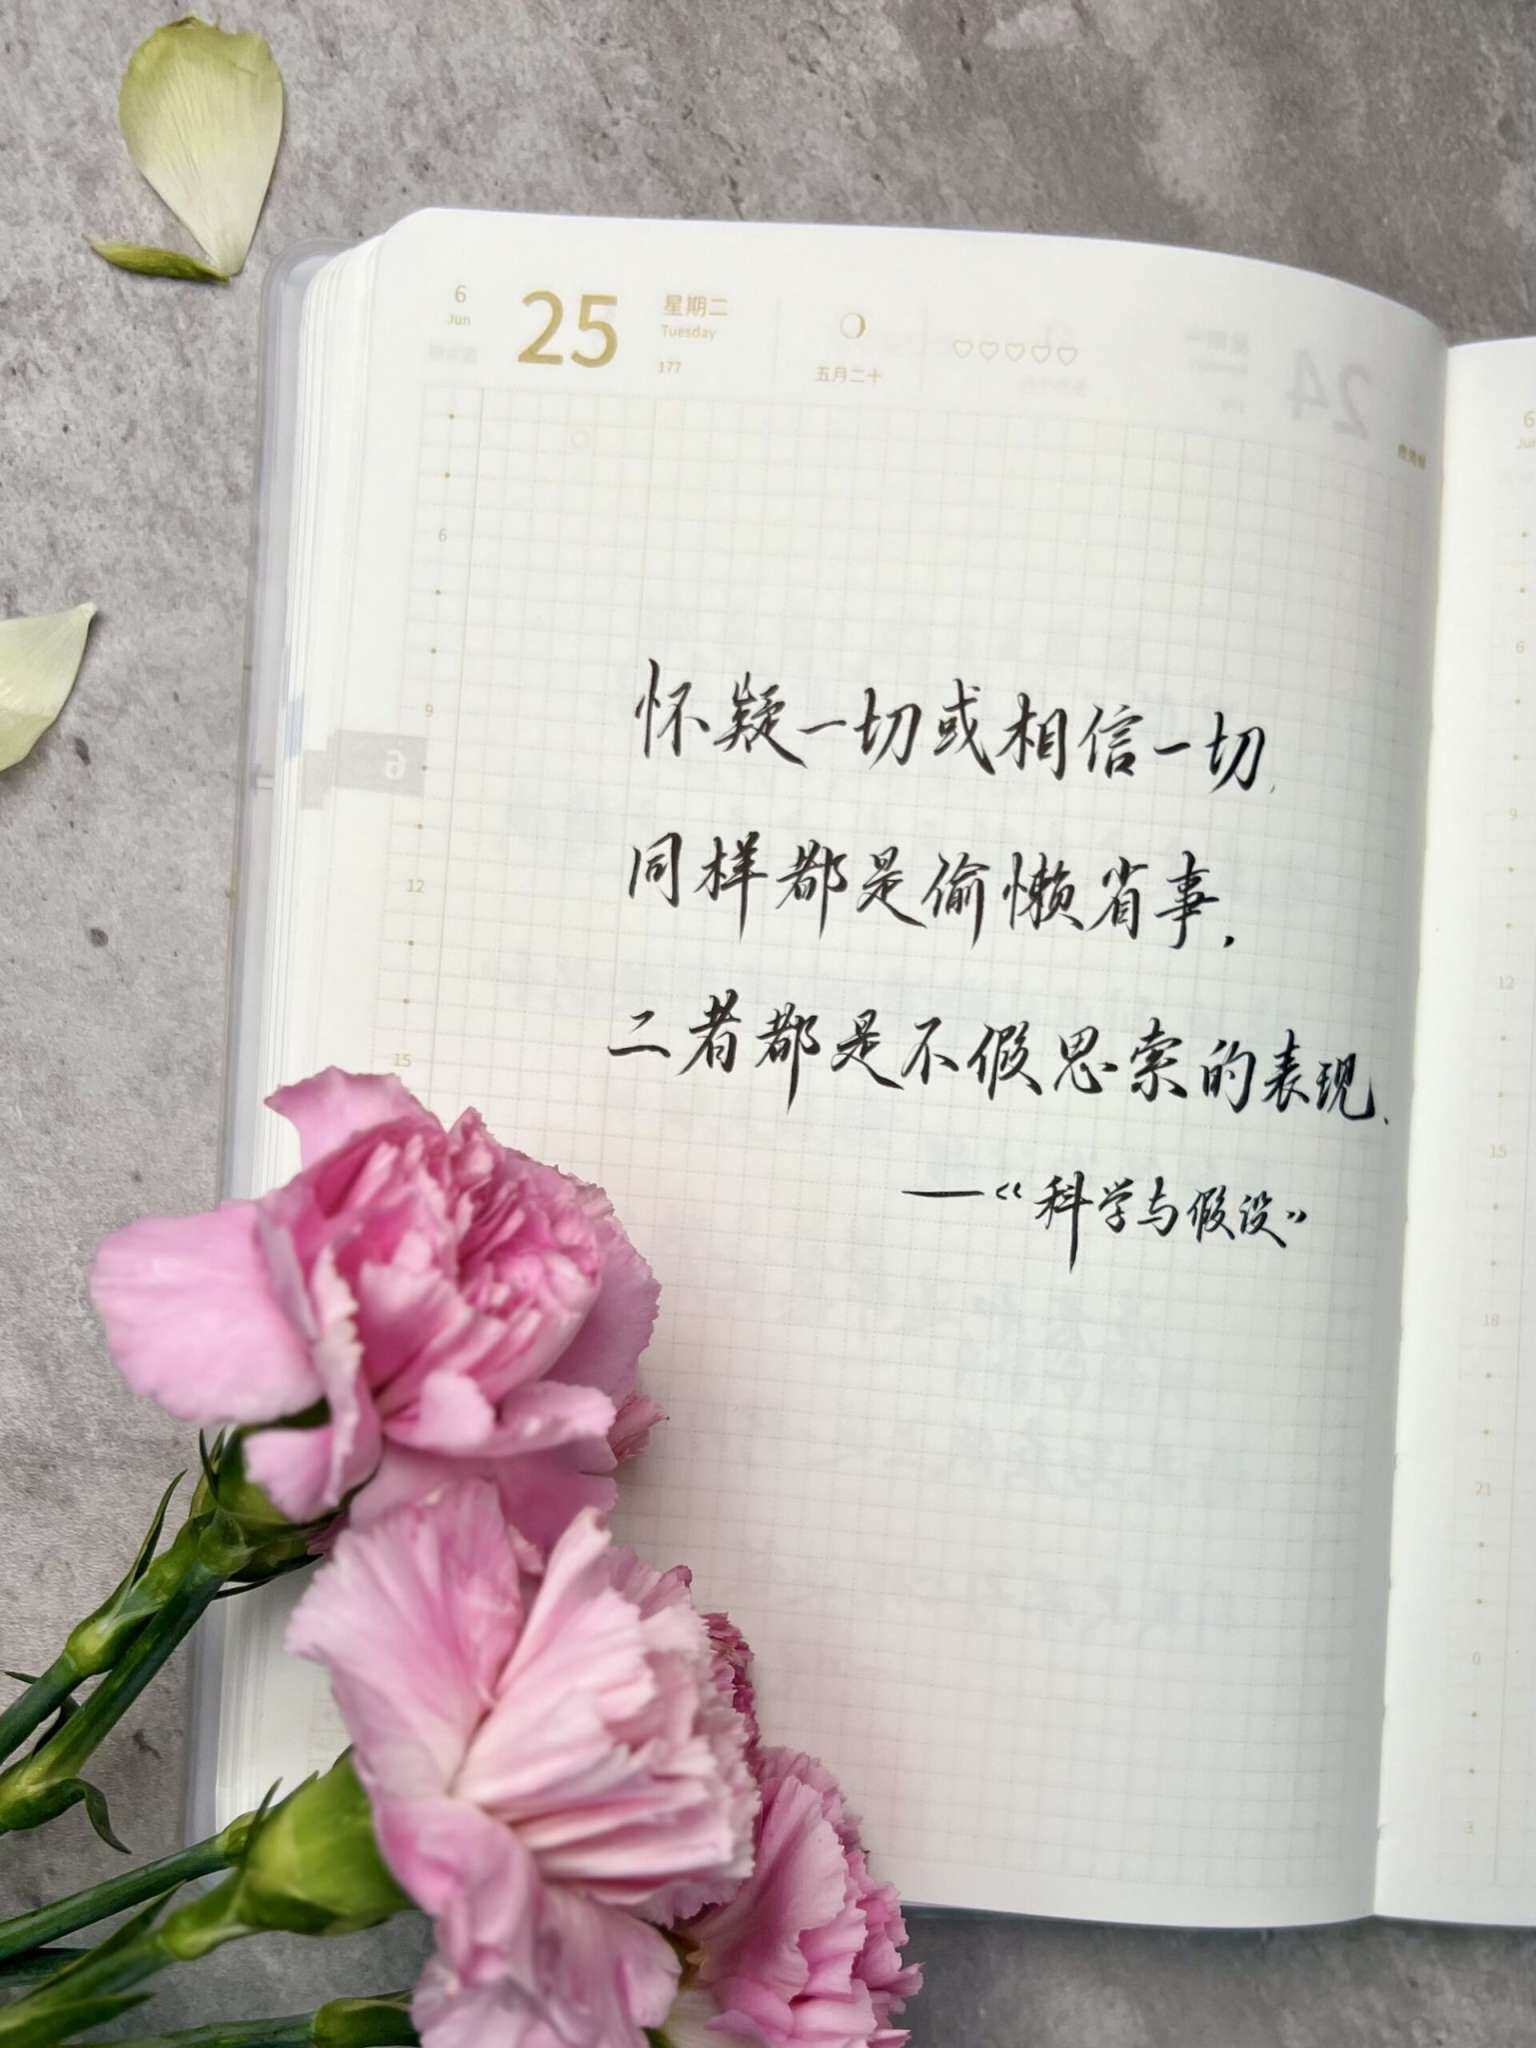 6
Jun
25
星期二
Tuesday
177
五月二十
6
9
12
15
怀疑一切或相信一切,
同样都是偷懒省事,
二者都是不假思索的表现.
—《科学与假设》
6
6
9
12
15
18
21
0
3